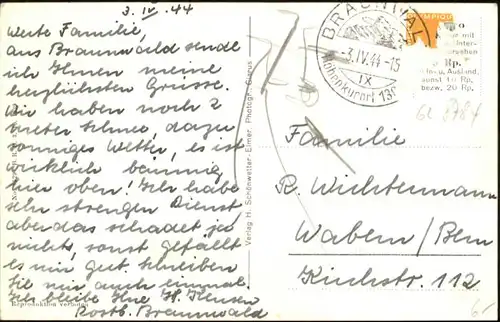 3. IV. 44
Werte Familie,
Aus Braunwald sende
ich Ihnen meine
herzlichsten Grüsse.
Wir haben noch 2
meter Schnee, dazu
sonniges Wetter, es ist
wirklich bäumig
hier oben! Ich habe
sehr strengen Dienst
aber das schadet ja
nichts, sonst gefällt
es mir gut. Schreiben
Sie mir auch einmal.
Ich bleibe Ihre H.
Postb. Braunwald
Reproduktion verboten
Verlag H. Schönwetter-Elmer, Photogr. Glarus
BRAUNWALD
-3.IV.44-15
IX
Höhenkurort 13
Rp.
und Ausland,
sonst 10 Rp.
bezw. 20 Rp.
Familie
R. Wichtermann
Wabern / Bern
Kirchstr. 112